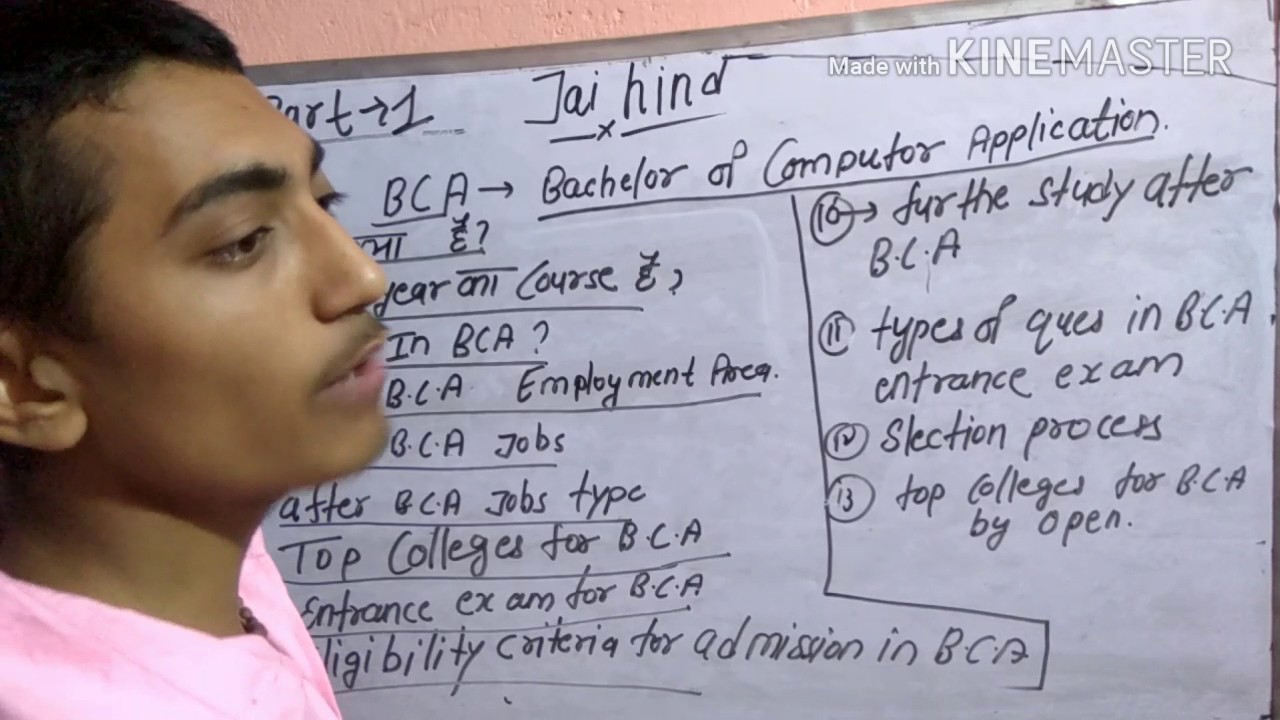 Made with KINEMASTER
Part → 1 Jai hind
BCA → Bachelor of Computor Application.
है?
year का Course है?
In BCA?
B.C.A Employment Area.
B.C.A Jobs
after B.C.A Jobs type
Top Colleges for B.C.A
Entrance exam for B.C.A
ligibility criteria for admission in B.C.A
10 → furthe study after
B.C.A
11 types of ques in B.C.A
entrance exam
Slection process
13 top Colleges for B.C.A
by open.